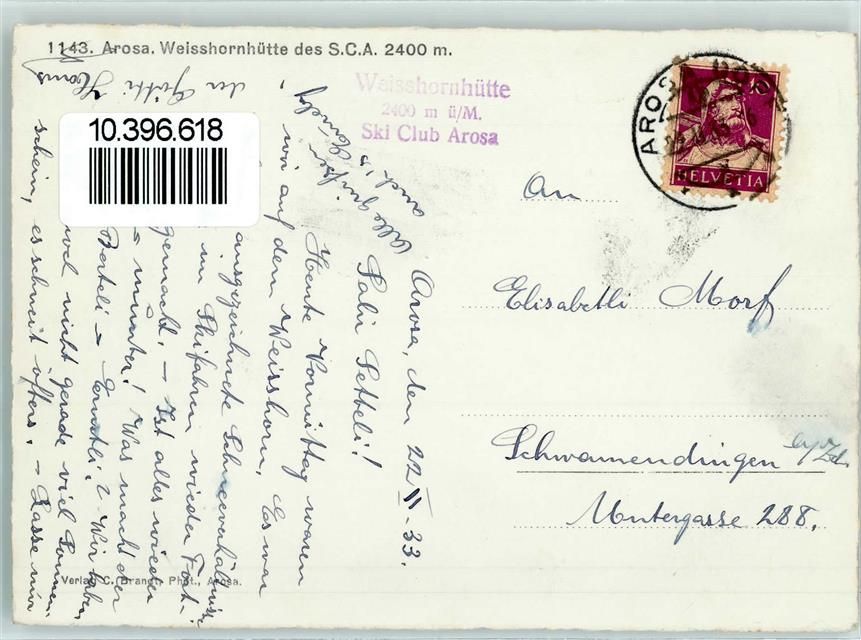 1143. Arosa. Weisshornhütte des S.C.A. 2400 m.
Weisshornhütte
2400 m ü/M.
Ski Club Arosa
AROSA
10
HELVETIA
10.396.618
An
Elisabethli Morf
Schwamendingen b/Zch.
Untergasse 288.
Arosa, den 22. II. 33.
Salü Setteli!
Heute Vormittag waren
wir auf dem Weisshorn. Es war
ausgezeichnete Schneeverhältnisse
im Skifahren wieder Fort-
gemacht. – Ist alles wieder
munter? Was macht der
Berteli – Ernstli? Wir haben
wol nicht gerade viel Sonnen-
schein, es schneit öfters. – Lasse mir
alle grüssen
auch
der Götti Hans
Verlag C. Brandt, Phot., Arosa.